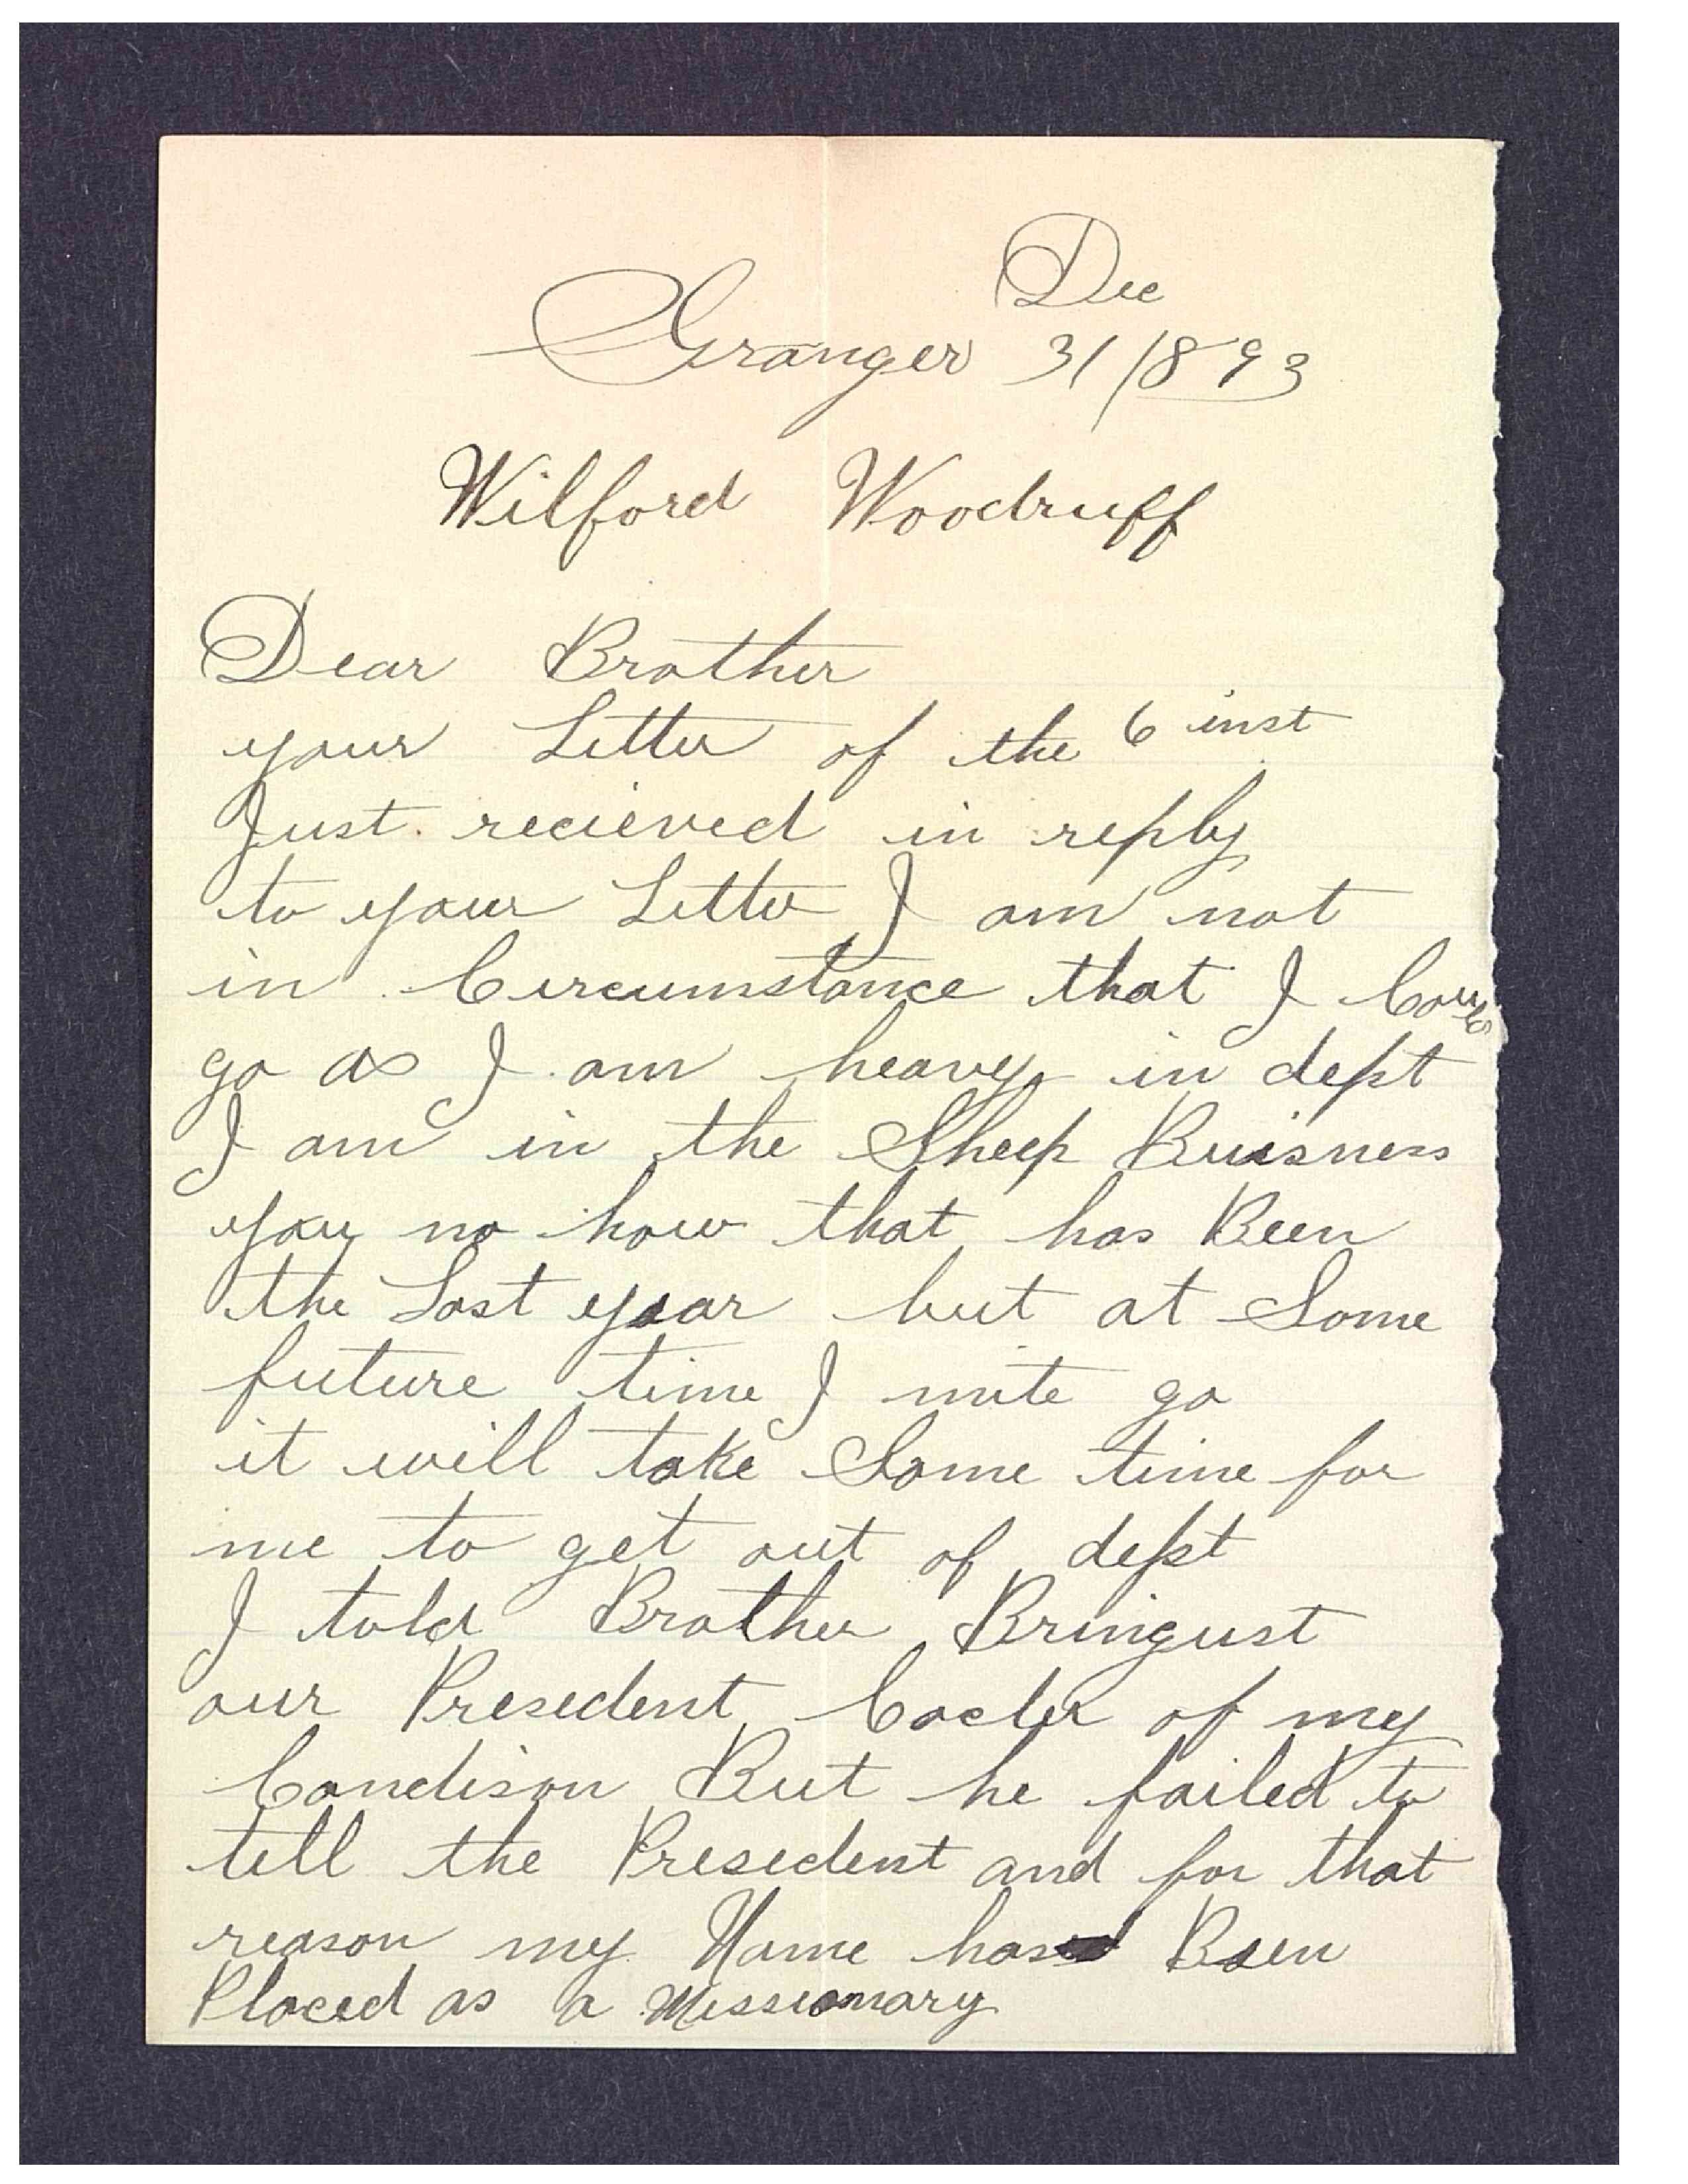 Dec
Granger 31/1893
Wilford Woodruff
Dear Brother
your Letter of the 6 inst
Just recieved in reply
to your Letter I am not
in Circumstance that I
go as I am heavy in dept
I am in the Sheep Buisness
you no how that has Been
the Last year but at Some
future time I mite go
it will take Some time for
me to get out of dept
I told Brother Bringust
our Presedent of my
Condison But he failed to
tell the Presedent and for that
reason my Name has Been
Placed as a Missionary